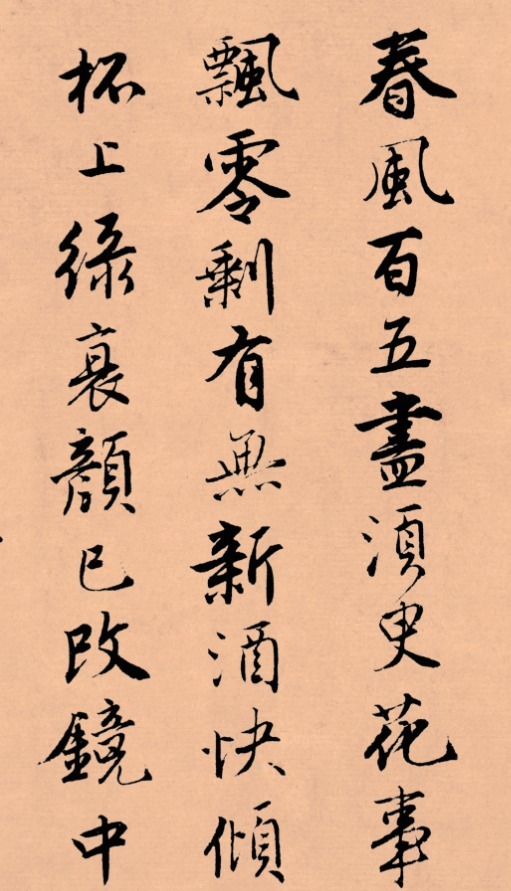 春風百五盡須臾花事
飄零剩有無新酒快傾
杯上綠衰顏已改鏡中